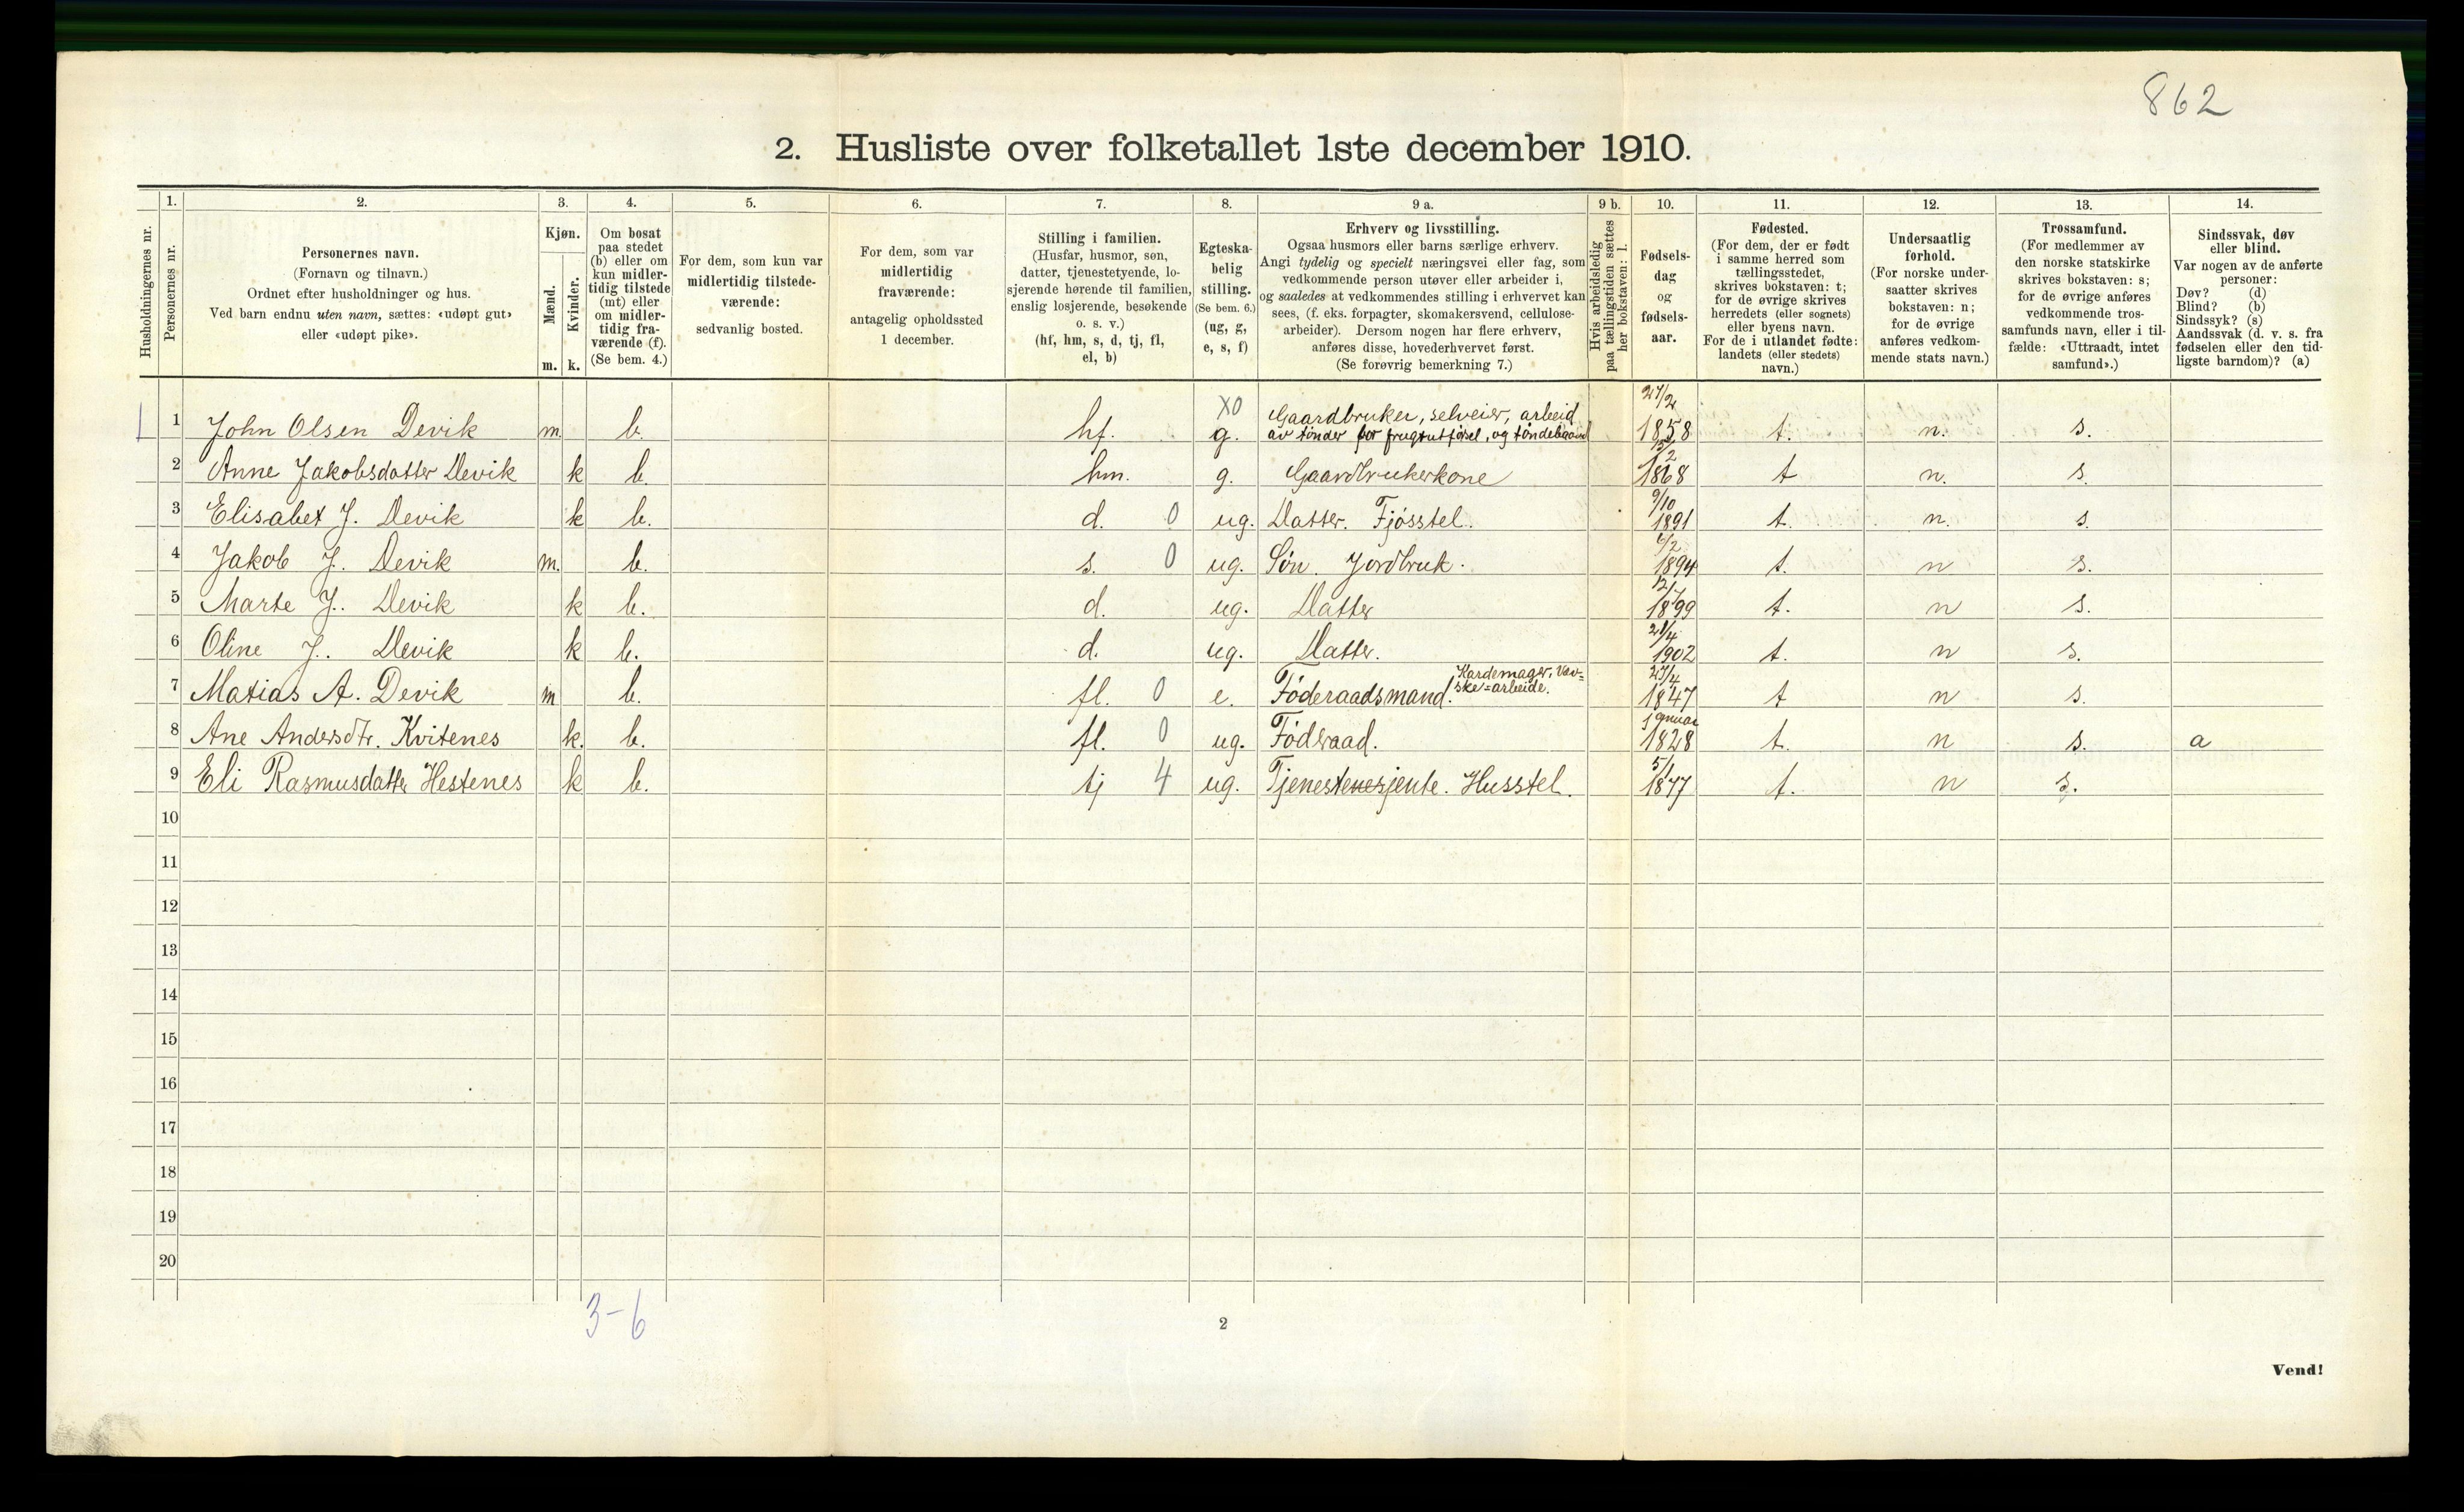 862
2. Husliste over folketallet 1ste december 1910.
Husholdningernes nr.
1.
Personernes nr.
2.
Personernes navn.
(Fornavn og tilnavn.)
Ordnet efter husholdninger og hus.
Ved barn endnu uten navn, sættes: «udøpt gut»
eller «udøpt pike».
3.
Kjøn.
Mænd.
Kvinder.
m. k.
4.
Om bosat
paa stedet
(b) eller om
kun midler-
tidig tilstede
(mt) eller
om midler-
tidig fra-
værende (f).
(Se bem. 4.)
5.
For dem, som kun var
midlertidig tilstede-
værende:
sedvanlig bosted.
6.
For dem, som var
midlertidig
fraværende:
antagelig opholdssted
1 december.
7.
Stilling i familien.
(Husfar, husmor, søn,
datter, tjenestetyende, lo-
sjerende hørende til familien,
enslig losjerende, besøkende
o. s. v.)
(hf, hm, s, d, tj, fl,
el, b)
8.
Egteska-
belig
stilling.
(Se bem. 6.)
(ug, g,
e, s, f)
9 a.
Erhverv og livsstilling.
Ogsaa husmors eller barns særlige erhverv.
Angi tydelig og specielt næringsvei eller fag, som
vedkommende person utøver eller arbeider i,
og saaledes at vedkommendes stilling i erhvervet kan
sees, (f. eks. forpagter, skomakersvend, cellulose-
arbeider). Dersom nogen har flere erhverv,
anføres disse, hovederhvervet først.
(Se forøvrig bemerkning 7.)
9 b.
Hvis arbeidsledig
paa tællingstiden sættes
her bokstaven: l.
10.
Fødsels-
dag
og
fødsels-
aar.
11.
Fødested.
(For dem, der er født
i samme herred som
tællingsstedet,
skrives bokstaven: t;
for de øvrige skrives
herredets (eller sognets)
eller byens navn.
For de i utlandet fødte:
landets (eller stedets)
navn.)
12.
Undersaatlig
forhold.
(For norske under-
saatter skrives
bokstaven: n;
for de øvrige
anføres vedkom-
mende stats navn.)
13.
Trossamfund.
(For medlemmer av
den norske statskirke
skrives bokstaven: s;
for de øvrige anføres
vedkommende tros-
samfunds navn, eller i til-
fælde: «Uttraadt, intet
samfund».)
14.
Sindssvak, døv
eller blind.
Var nogen av de anførte
personer:
Døv? (d)
Blind? (b)
Sindssyk? (s)
Aandssvak (d. v. s. fra
fødselen eller den tid-
ligste barndom)? (a)
1 1 John Olsen Devik m. b. hf. X0 g. Gaardbruker, selveier, arbeid
av tønder for frugtutførsel, og tøndebaand 27/2 1858 t. n. s.
2 Anne Jakobsdatter Devik k b. hm. g. Gaardbrukerkone 15/2 1868 t n. s.
3 Elisabet J. Devik k b. d. 0 ug. Datter. Fjøsstel. 9/10 1891 t. n. s.
4 Jakob J. Devik m. b. s. 0 ug. Søn. Jordbruk. 6/2 1894 t. n s.
5 Marte J. Devik k b. d. ug. Datter 12/7 1899 t. n s.
6 Oline J. Devik k b. d. ug. Datter. 21/4 1902 t. n s.
7 Matias A. Devik m b. fl. 0 e. Føderaadsmand. Kardemager, Væv=
ske=arbeide. 27/4 1847 t n s.
8 Ane Andersdtr. Kvitenes k. b. fl. 0 ug. Føderaad. januar 1828 t. n s. a
9 Eli Rasmusdatter Hestenes k b. tj 4 ug. Tjenestenesjente. Husstel. 5/1 1877 t. n s.
10
11
12
13
14
15
16
17
18
19
20
3-6
2
Vend!